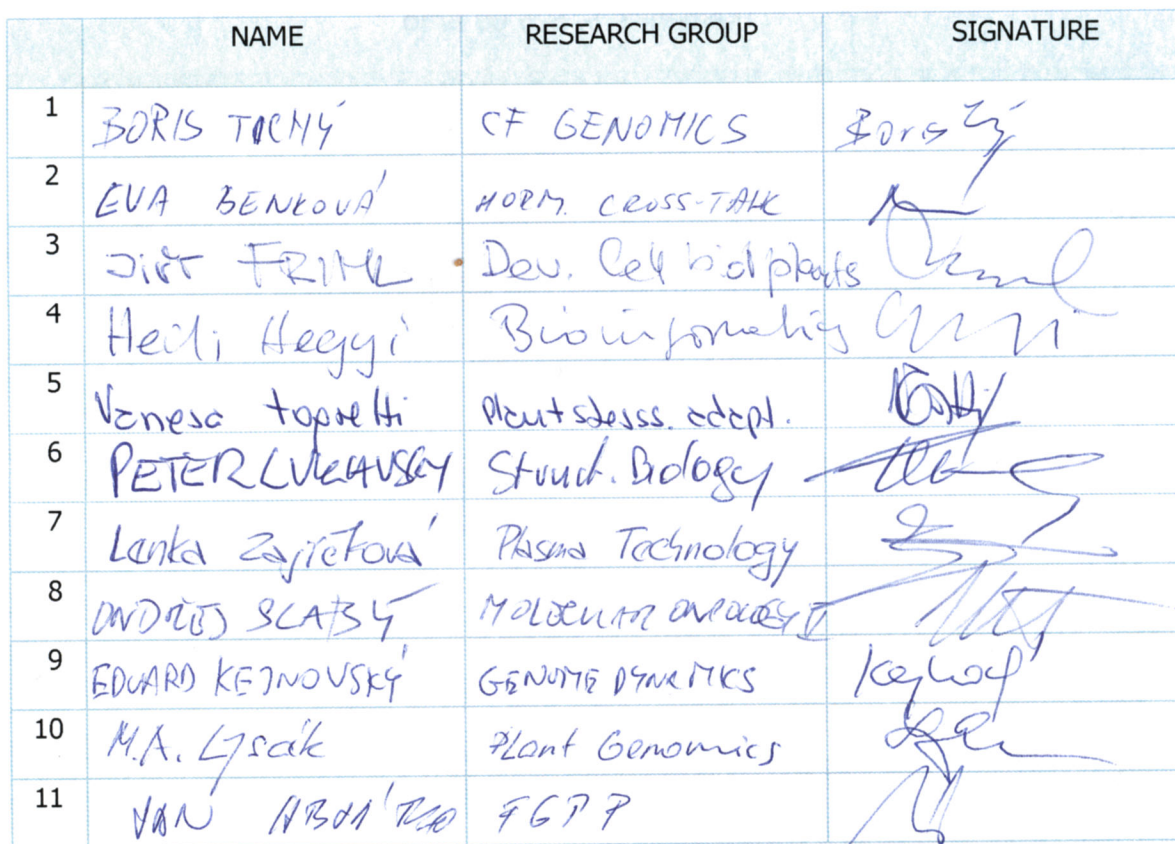 NAME RESEARCH GROUP SIGNATURE
1 BORIS TICHÝ CF GENOMICS Boris
2 EVA BENKOVÁ HORM. CROSS-TALK
3 JIŘÍ FRIML Dev. Cell biol plants
4 Hedi Hegyi Bioinformatics
5 Vanesa Plant stress. adapt.
6 PETER LUKAVSKY Struct. Biology
7 Lenka Zajíčková Plasma Technology
8 ONDŘEJ SLABÝ MOLECULAR ONCOLOGY II
9 EDUARD KEJNOVSKÝ GENOME DYNAMICS Kejnovský
10 M.A. Lysák Plant Genomics
11 FGPP